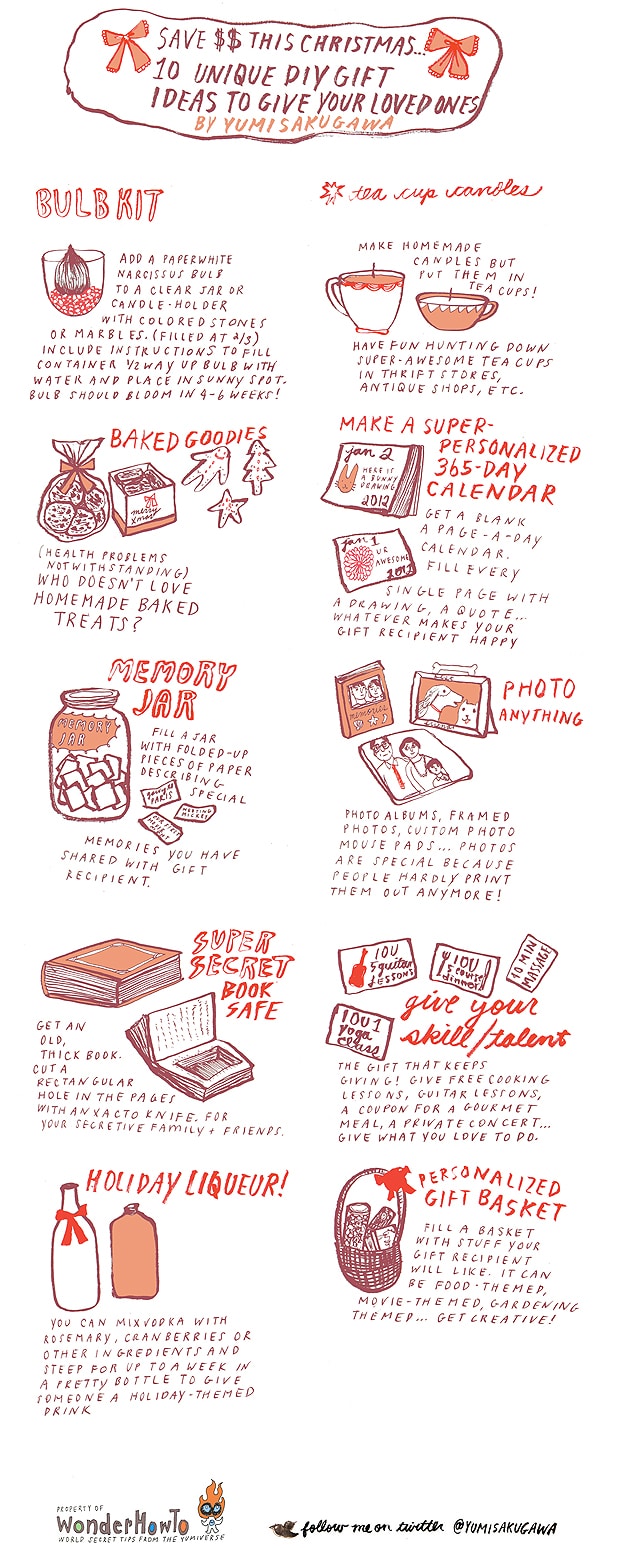 SAVE $$ THIS CHRISTMAS...
10 UNIQUE DIY GIFT
IDEAS TO GIVE YOUR LOVED ONES
BY YUMI SAKUGAWA
BULB KIT
ADD A PAPERWHITE
NARCISSUS BULB
TO A CLEAR JAR OR
CANDLE-HOLDER
WITH COLORED STONES
OR MARBLES. (FILLED AT 2/3)
INCLUDE INSTRUCTIONS TO FILL
CONTAINER 1/2 WAY UP BULB WITH
WATER AND PLACE IN SUNNY SPOT.
BULB SHOULD BLOOM IN 4-6 WEEKS!
tea cup candles
MAKE HOMEMADE
CANDLES BUT
PUT THEM IN
TEA CUPS!
HAVE FUN HUNTING DOWN
SUPER-AWESOME TEA CUPS
IN THRIFT STORES,
ANTIQUE SHOPS, ETC.
BAKED GOODIES
merry
xmas
(HEALTH PROBLEMS
NOTWITHSTANDING)
WHO DOESN'T LOVE
HOMEMADE BAKED
TREATS?
MAKE A SUPER-
PERSONALIZED
365-DAY
CALENDAR
jan 2
HERE IS
A BUNNY
DRAWING
2012
jan 1
UR
AWESOME
2012
GET A BLANK
A PAGE-A-DAY
CALENDAR.
FILL EVERY
SINGLE PAGE WITH
A DRAWING, A QUOTE...
WHATEVER MAKES YOUR
GIFT RECIPIENT HAPPY
MEMORY
JAR
MEMORY
JAR
FILL A JAR
WITH FOLDED-UP
PIECES OF PAPER
DESCRIBING
SPECIAL
PARIS
MEETING
MICKEY
MEMORIES YOU HAVE
SHARED WITH GIFT
RECIPIENT.
PHOTO
ANYTHING
memories
PHOTO ALBUMS, FRAMED
PHOTOS, CUSTOM PHOTO
MOUSE PADS... PHOTOS
ARE SPECIAL BECAUSE
PEOPLE HARDLY PRINT
THEM OUT ANYMORE!
SUPER
SECRET
BOOK
SAFE
GET AN
OLD,
THICK BOOK.
CUT A
RECTANGULAR
HOLE IN THE PAGES
WITH AN XACTO KNIFE. FOR
YOUR SECRETIVE FAMILY + FRIENDS.
IOU
5 guitar
LESSONS
IOU
5 course
dinner
10 MIN
MASSAGE
IOU 1
yoga
class
give your
skill/talent
THE GIFT THAT KEEPS
GIVING! GIVE FREE COOKING
LESSONS, GUITAR LESSONS,
A COUPON FOR A GOURMET
MEAL, A PRIVATE CONCERT...
GIVE WHAT YOU LOVE TO DO.
HOLIDAY LIQUEUR!
YOU CAN MIX VODKA WITH
ROSEMARY, CRANBERRIES OR
OTHER INGREDIENTS AND
STEEP FOR UP TO A WEEK IN
A PRETTY BOTTLE TO GIVE
SOMEONE A HOLIDAY-THEMED
DRINK
PERSONALIZED
GIFT BASKET
FILL A BASKET
WITH STUFF YOUR
GIFT RECIPIENT
WILL LIKE. IT CAN
BE FOOD-THEMED,
MOVIE-THEMED, GARDENING
THEMED... GET CREATIVE!
PROPERTY OF
WonderHowTo
WORLD SECRET TIPS FROM THE YUMIVERSE
follow me on twitter @YUMISAKUGAWA